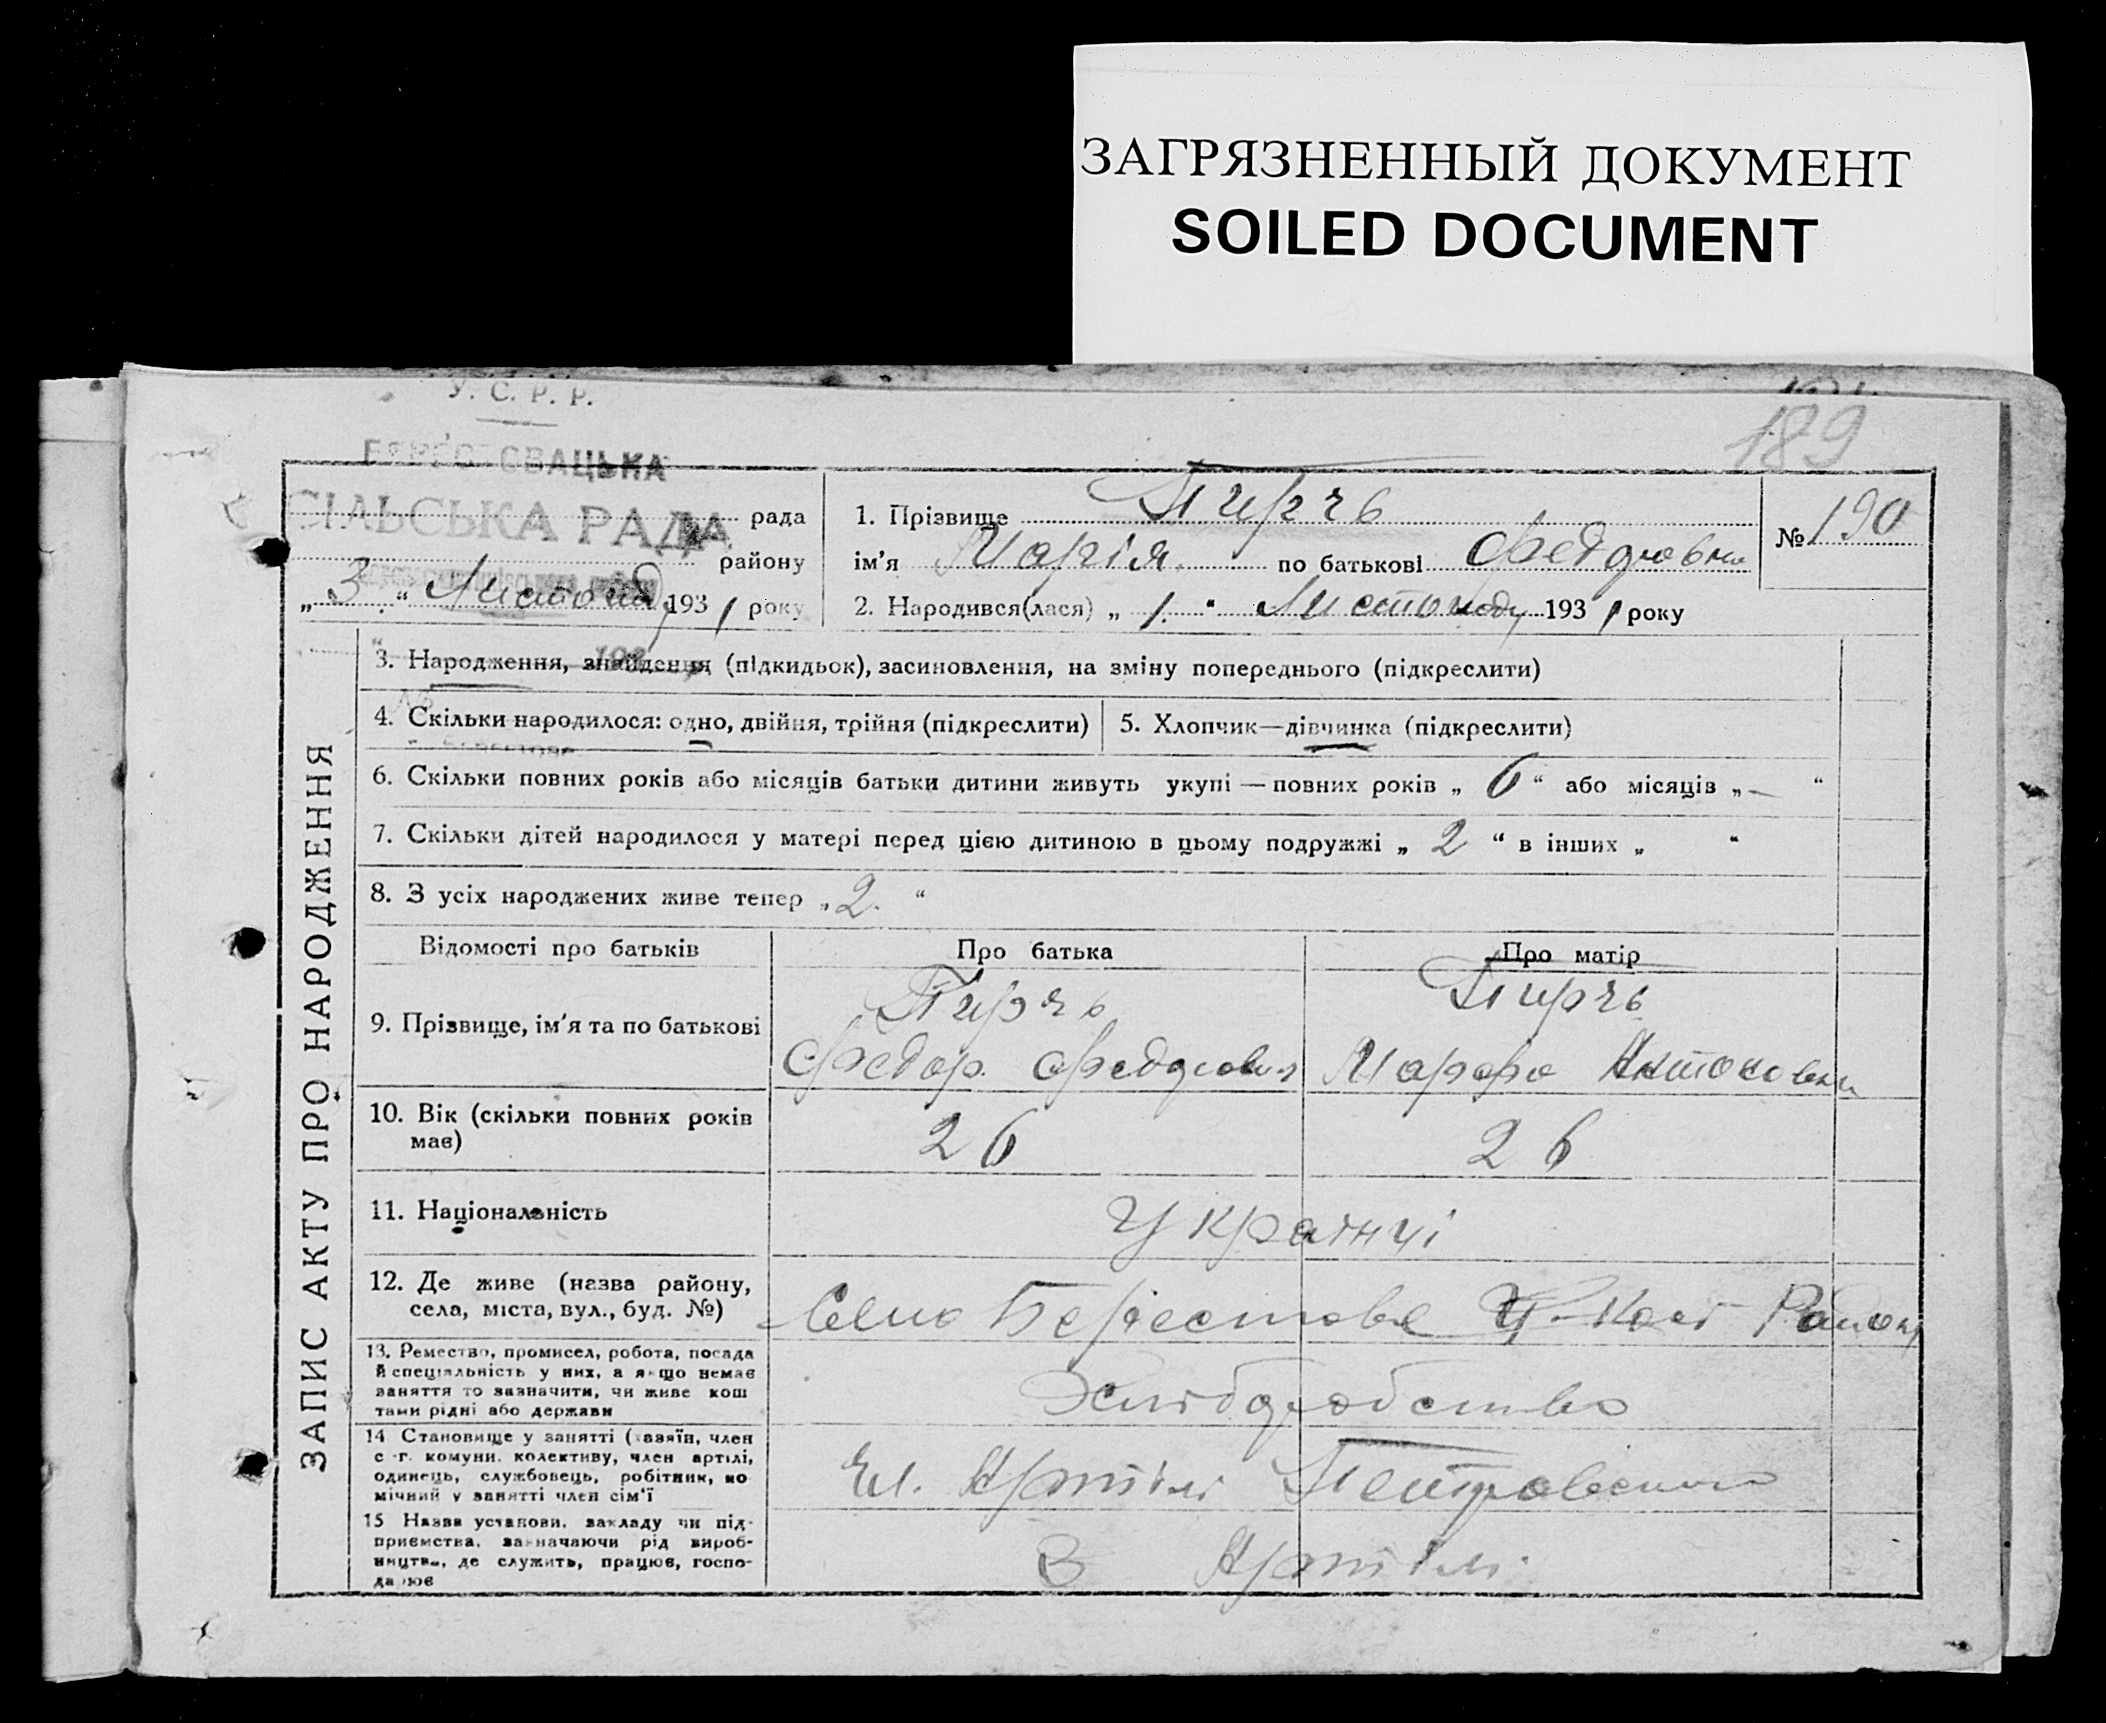 ЗАГРЯЗНЕННЫЙ ДОКУМЕНТ
SOILED DOCUMENT
У. С. Р. Р.
189
СІЛЬСЬКА РАДА рада
району
„3.“ Листопад 1931 року
1. Прізвище Пирчь
ім'я Марія по батькові Федоровна
№ 190
2. Народився(лася) „1.“ Листопаду 1931 року
ЗАПИС АКТУ ПРО НАРОДЖЕННЯ
3. Народження, знайдення (підкидьок), засиновлення, на зміну попереднього (підкреслити)
4. Скільки народилося: одно, двійня, трійня (підкреслити)
5. Хлопчик—дівчинка (підкреслити)
6. Скільки повних років або місяців батьки дитини живуть укупі — повних років „ 6 “ або місяців „ — “
7. Скільки дітей народилося у матері перед цією дитиною в цьому подружжі „ 2 “ в інших „ “
8. З усіх народжених живе тепер „ 2. “
Відомості про батьків
Про батька
Про матір
9. Прізвище, ім'я та по батькові
Пирчь
Федор Федорович
Пирчь
Марфа Антоновна
10. Вік (скільки повних років
має)
26
26
11. Національність
Українці
12. Де живе (назва району,
села, міста, вул., буд. №)
Село Берестове Район
13. Ремество, промисел, робота, посада
й спеціяльність у них, а якщо немає
заняття то зазначити, чи живе кош
тами рідні або держави
Хліборобство
14 Становище у занятті (хазяїн, член
с-г. комуни. колективу, член артілі,
одинець, службовець, робітник, по
мічний у занятті член сім'ї
Чл. Артілі Петровського
15 Назва установи. закладу чи під-
приємства, зазначаючи рід вироб-
ництва, де служить, працює, госпо-
дарює
В Артілі